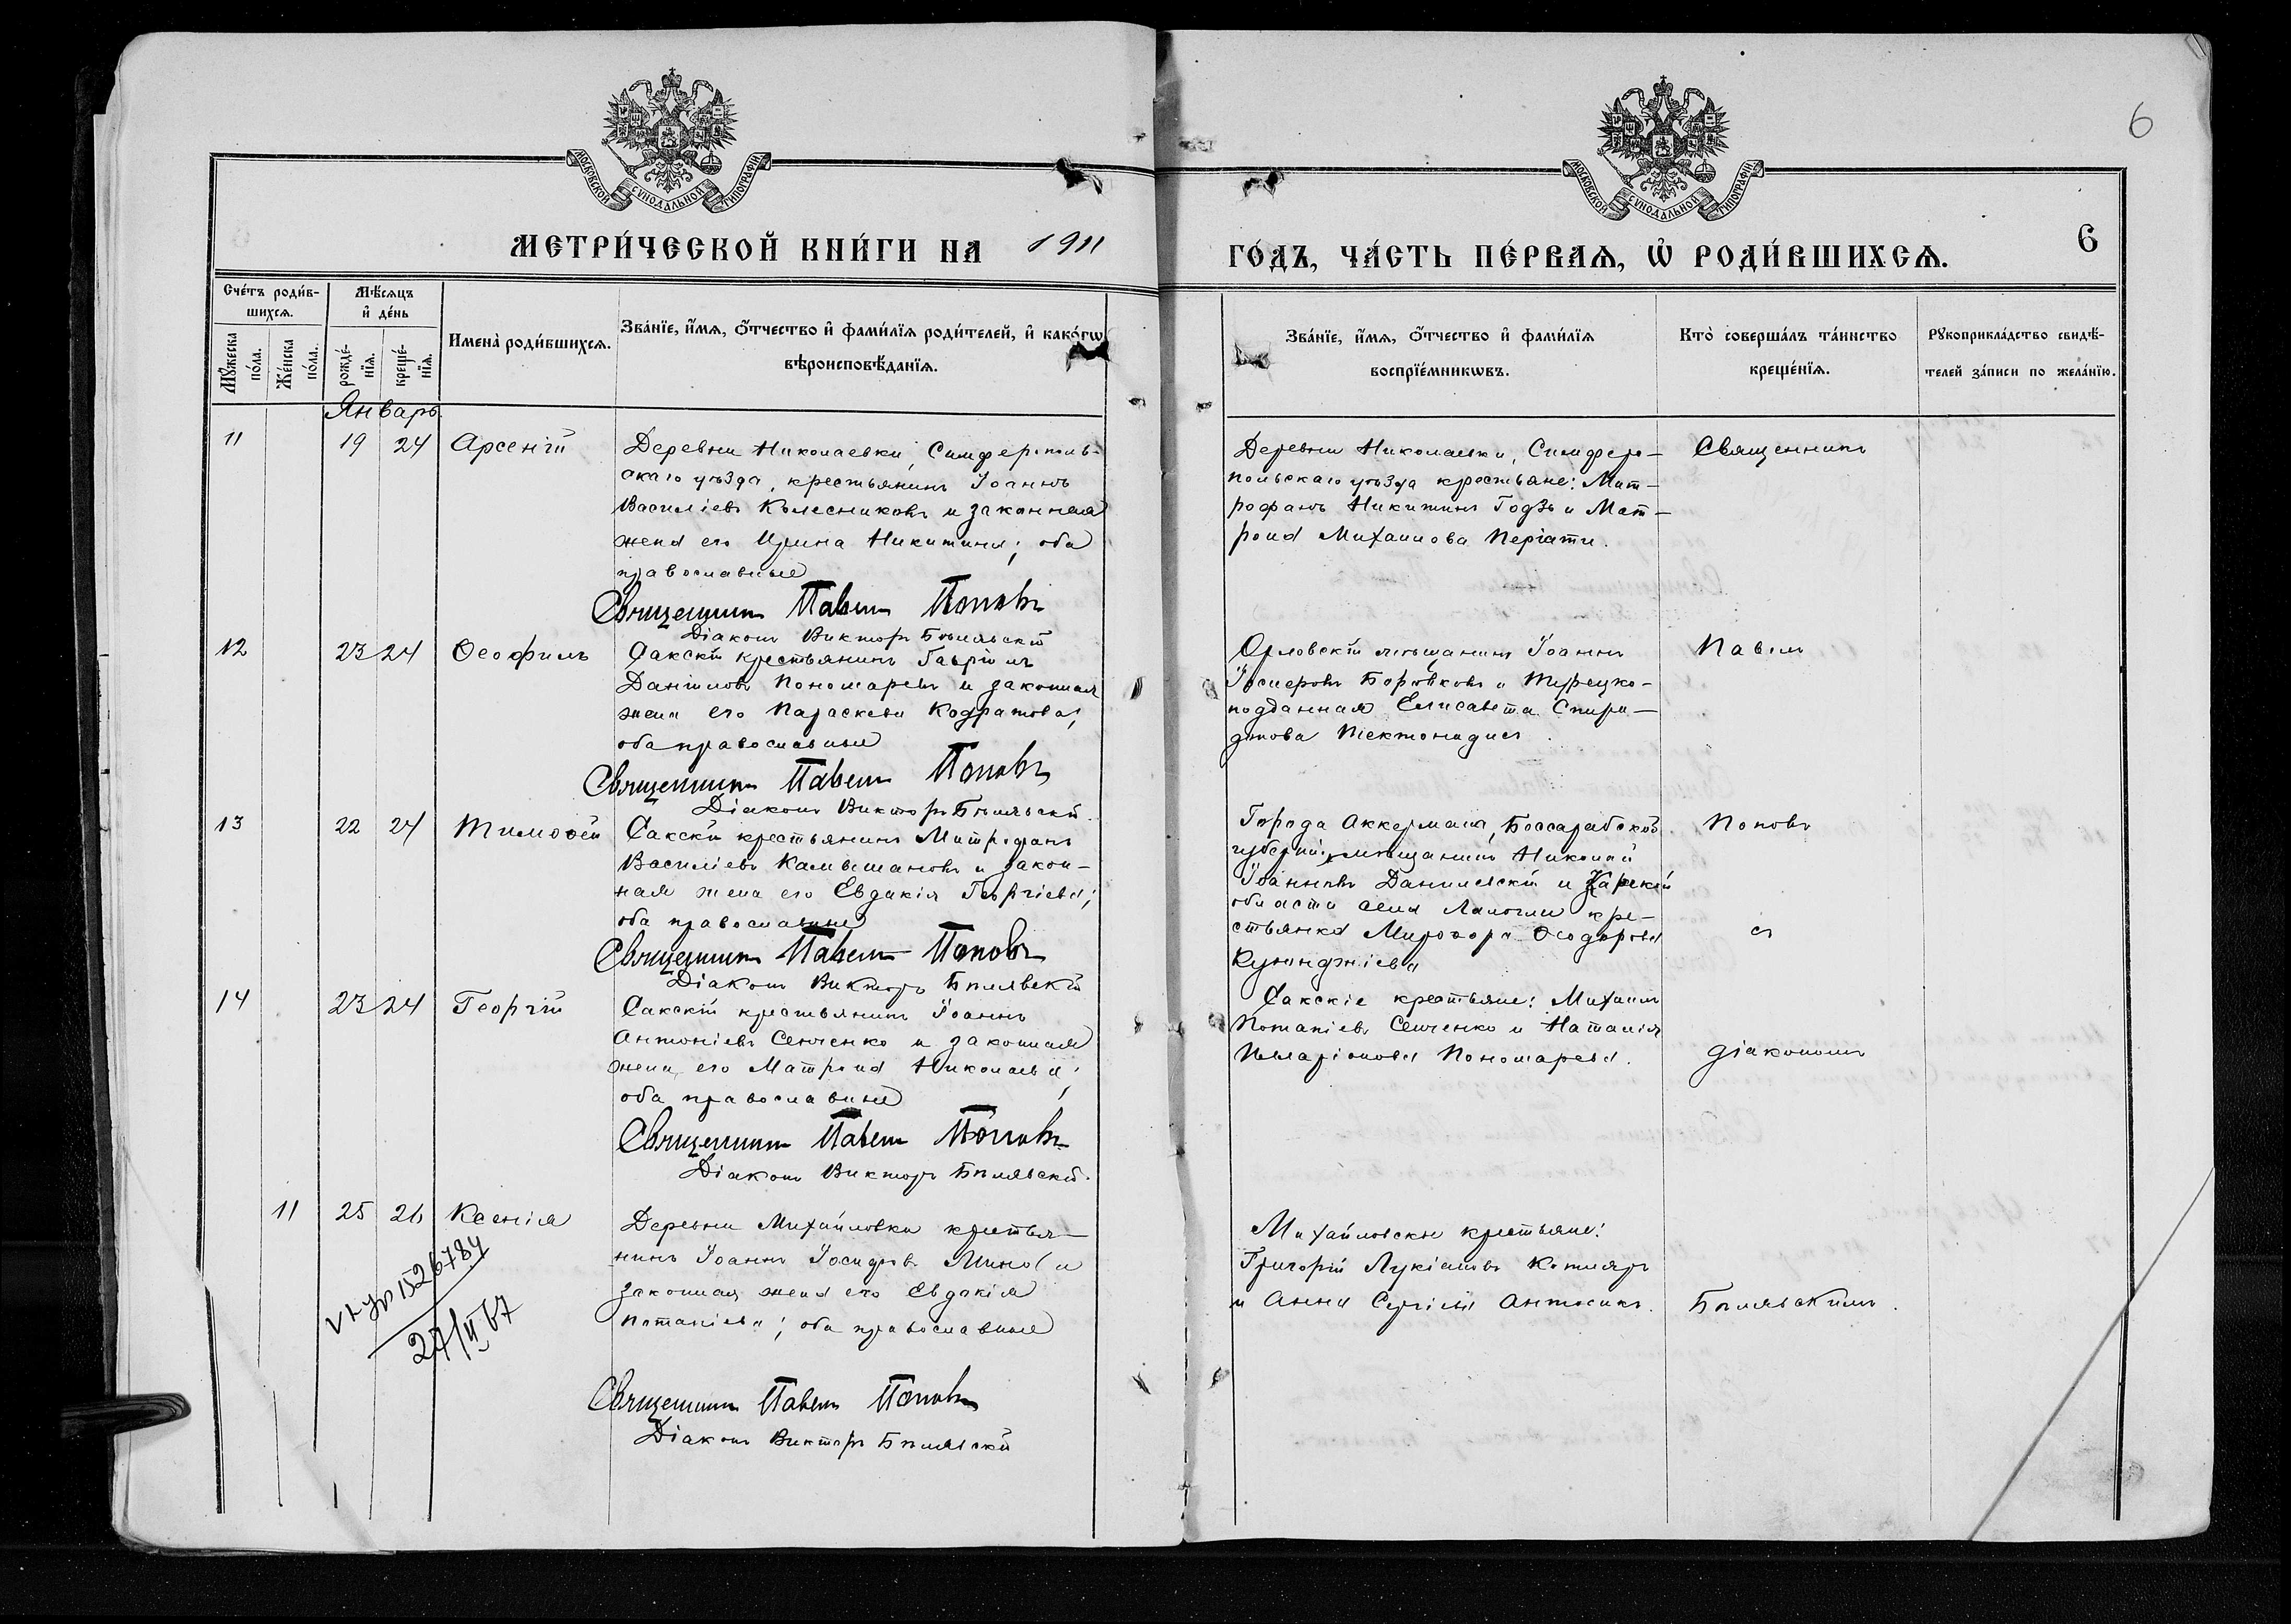 6
МОСКОВСКОЙ СУНОДАЛЬНОЙ ТИПОГРАФІИ
МОСКОВСКОЙ СУНОДАЛЬНОЙ ТИПОГРАФІИ
МЕТРИ́ЧЕСКОЙ КНИ́ГИ НА 1911
ГО́ДЪ, ЧА́СТЬ ПЕ́РВАѦ, Ѡ҆ РОДИ́ВШИХСѦ.
6
Сче́тъ роди́в-
шихсѧ.
Мꙋ́жеска по́ла.
Же́нска по́ла.
Мѣ́сѧцъ
и҆ де́нь
рожде́-
нїѧ.
креще́-
нїѧ.
Имена̀ роди́вшихсѧ.
Зва́нїе, и҆́мѧ, ѻ҆́тчество и҆ фами́лїѧ роди́телей, и҆ како́гѡ
вѣроисповѣ́данїѧ.
Зва́нїе, и҆́мѧ, ѻ҆́тчество и҆ фами́лїѧ
воспрїе́мникѡвъ.
Кто̀ соверша́лъ та́инство
креще́нїѧ.
Рꙋкоприкла́дство свидѣ́-
телей за́писи по жела́нїю.
Январь
11 19 24 Арсеній
Деревни Николаевки, Симферополь-
скаго уѣзда, крестьянинъ Іоаннъ
Василіевъ Колесниковъ и законная
жена его Ирина Никитина; оба
православные
Священникъ Павелъ Поповъ
Діаконъ Викторъ Бѣлявскій
Деревни Николаевки, Симферо-
польскаго уѣзда крестьяне: Мит-
рофанъ Никитинъ Годзь и Мат-
рона Михаилова
Священникъ
12 23 24 Ѳеофилъ
Сакскій крестьянинъ Гавріилъ
Даніиловъ Пономаревъ и законная
жена его Параскева Кодратова;
оба православные
Священникъ Павелъ Поповъ
Діаконъ Викторъ Бѣлявскій.
Орловскій мѣщанинъ Іоаннъ
Боровковъ и Турецко-
подданная Елисавета Спири-
донова
Павелъ
13 22 24 Тимоѳей
Сакскій крестьянинъ Митрофанъ
Василіевъ Камышановъ и закон-
ная жена его Евдокія Георгіева;
оба православные
Священникъ Павелъ Поповъ
Діаконъ Викторъ Бѣлявскій
Города Аккермана, Бессарабской
губерніи, мѣщанинъ Николай
Іоанновъ Данилевскій и Карской
области села кре-
стьянка Ѳеодорова
Куюнджіева
Поповъ
съ
14 23 24 Георгій
Сакскій крестьянинъ Іоаннъ
Антоніевъ Сенченко и законная
жена его Матрона Николаева;
оба православные
Священникъ Павелъ Поповъ
Діаконъ Викторъ Бѣлявскій.
Сакскіе крестьяне: Михаилъ
Потапіевъ Сенченко и Наталія
Иларіонова Пономарева.
діакономъ
11 25 26 Ксенія
Деревни Михайловки крестья-
нинъ Іоаннъ Іосифовъ и
законная жена его Евдокія
Потапіева; оба православные
Священникъ Павелъ Поповъ
Діаконъ Викторъ Бѣлявскій
Михайловскіе крестьяне:
Григорій Лукіановъ Котляръ
и Анна Сергіева Антосикъ.
Бѣлявскимъ.
1526784
27/II 67